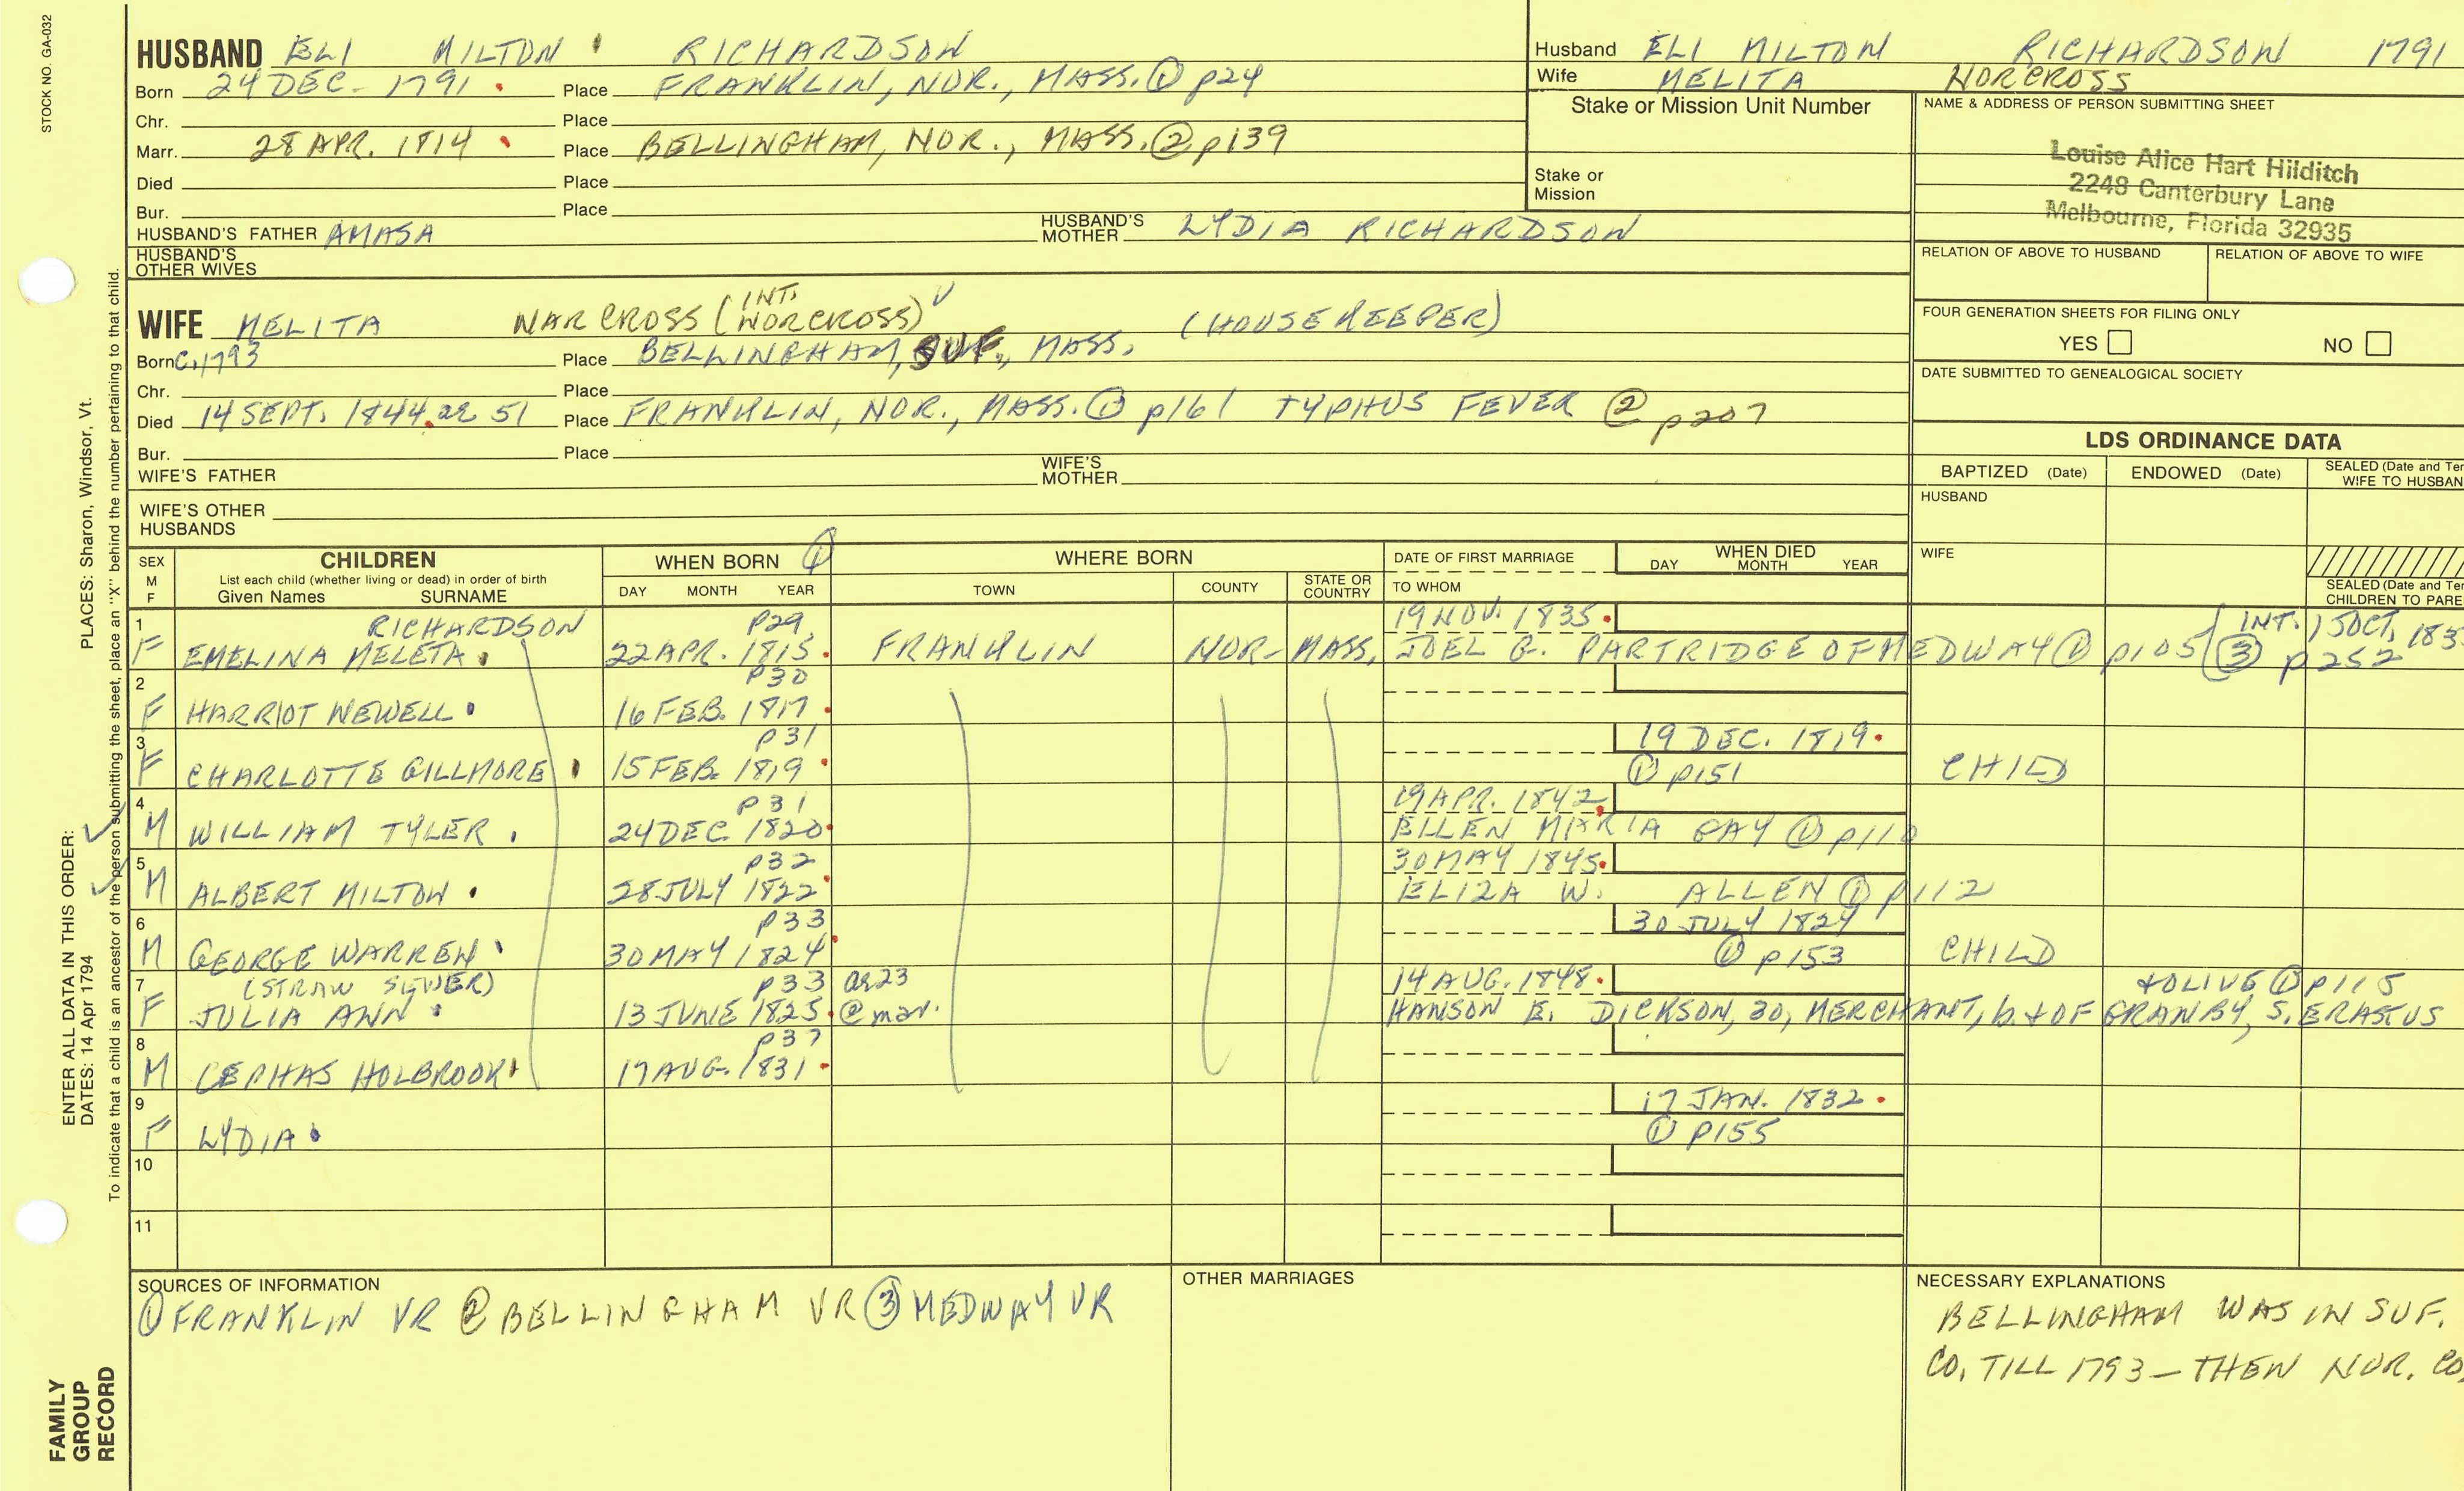 STOCK NO. GA-032
HUSBAND ELI MILTON RICHARDSON
Born 24 DEC - 1791 Place FRANKLIN, NOR., MASS. ① p24
Chr. Place
Marr. 28 APR. 1814 Place BELLINGHAM, NOR., MASS. ② p139
Died Place
Bur. Place
HUSBAND'S FATHER AMASA HUSBAND'S MOTHER LYDIA RICHARDSON
HUSBAND'S OTHER WIVES
Husband ELI MILTON RICHARDSON 1791
Wife MELITA NORCROSS
Stake or Mission Unit Number
Stake or Mission
NAME & ADDRESS OF PERSON SUBMITTING SHEET
Louise Alice Hart Hilditch
2248 Canterbury Lane
Melbourne, Florida 32935
RELATION OF ABOVE TO HUSBAND RELATION OF ABOVE TO WIFE
FOUR GENERATION SHEETS FOR FILING ONLY
YES NO
DATE SUBMITTED TO GENEALOGICAL SOCIETY
INT.
WIFE MELITA NARCROSS (NORCROSS) (HOUSEKEEPER)
Born C.1793 Place BELLINGHAM, SUF., MASS.
Chr. Place
Died 14 SEPT. 1844. ae 51 Place FRANKLIN, NOR., MASS. ① p161 TYPHUS FEVER ② p207
Bur. Place
WIFE'S FATHER WIFE'S MOTHER
WIFE'S OTHER HUSBANDS
LDS ORDINANCE DATA
BAPTIZED (Date) ENDOWED (Date) SEALED (Date and Tem
WIFE TO HUSBAN
HUSBAND
WIFE
SEALED (Date and Tem
CHILDREN TO PARE
SEX M F CHILDREN WHEN BORN ① WHERE BORN DATE OF FIRST MARRIAGE WHEN DIED
List each child (whether living or dead) in order of birth
Given Names SURNAME DAY MONTH YEAR TOWN COUNTY STATE OR COUNTRY TO WHOM DAY MONTH YEAR
1 RICHARDSON P29 19 NOV. 1835. INT. 15 OCT. 183
F EMELINA MELETA 22 APR. 1815. FRANKLIN NOR- MASS. JOEL G. PARTRIDGE OF MEDWAY ① p105 ③ p252
2 P30
F HARRIOT NEWELL 16 FEB. 1817
3 P31 19 DEC. 1819.
F CHARLOTTE GILLMORE 15 FEB. 1819 ① p151 CHILD
4 P31 19 APR. 1842
M WILLIAM TYLER 24 DEC 1820 ELLEN MARIA GAY ① p110
5 P32 30 MAY 1845
M ALBERT MILTON 28 JULY 1822 ELIZA W. ALLEN ① p112
6 P33 30 JULY 1824
M GEORGE WARREN 30 MAY 1824 ① p153 CHILD
7 (STRAW SEWER) P33 ae 23 14 AUG. 1848. + OLIVE ① p115
F JULIA ANN 13 JUNE 1825 @ mar. HANSON E. DICKSON, 30, MERCHANT, b. + OF GRANBY, S. ERASTUS
8 P37
M CEPHAS HOLBROOK 17 AUG. 1831
9 17 JAN. 1832
F LYDIA ① P155
10
11
SOURCES OF INFORMATION
① FRANKLIN VR ② BELLINGHAM VR ③ MEDWAY VR
OTHER MARRIAGES
NECESSARY EXPLANATIONS
BELLINGHAM WAS IN SUF.
CO. TILL 1793 - THEN NOR. CO.
ENTER ALL DATA IN THIS ORDER:
DATES: 14 Apr 1794 PLACES: Sharon, Windsor, Vt.
To indicate that a child is an ancestor of the person submitting the sheet, place an "X" behind the number pertaining to that child.
FAMILY
GROUP
RECORD